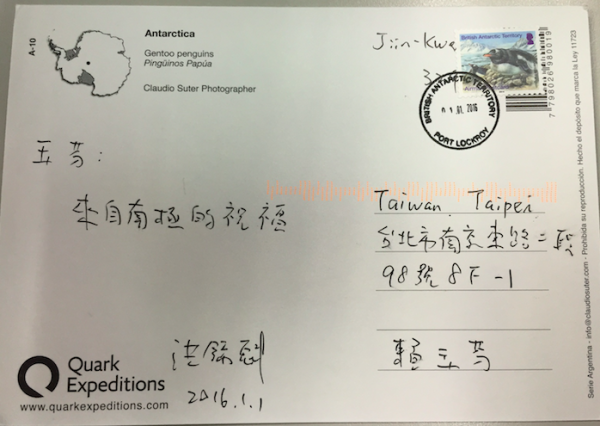 A-10
Antarctica
Gentoo penguins
Pingüinos Papúa
Claudio Suter Photographer
Jiin-Kwa
British Antarctic Territory
BRITISH ANTARCTIC TERRITORY
01 01 2016
PORT LOCKROY
7798026980019
Serie Argentina - info@claudiosuter.com - Prohibida su reproducción. Hecho el depósito que marca la Ley 11723
玉芳:
來自南極的祝福
2016.1.1
Taiwan Taipei
台北市南京東路二段
98號8F-1
賴玉芳
Quark
Expeditions
www.quarkexpeditions.com